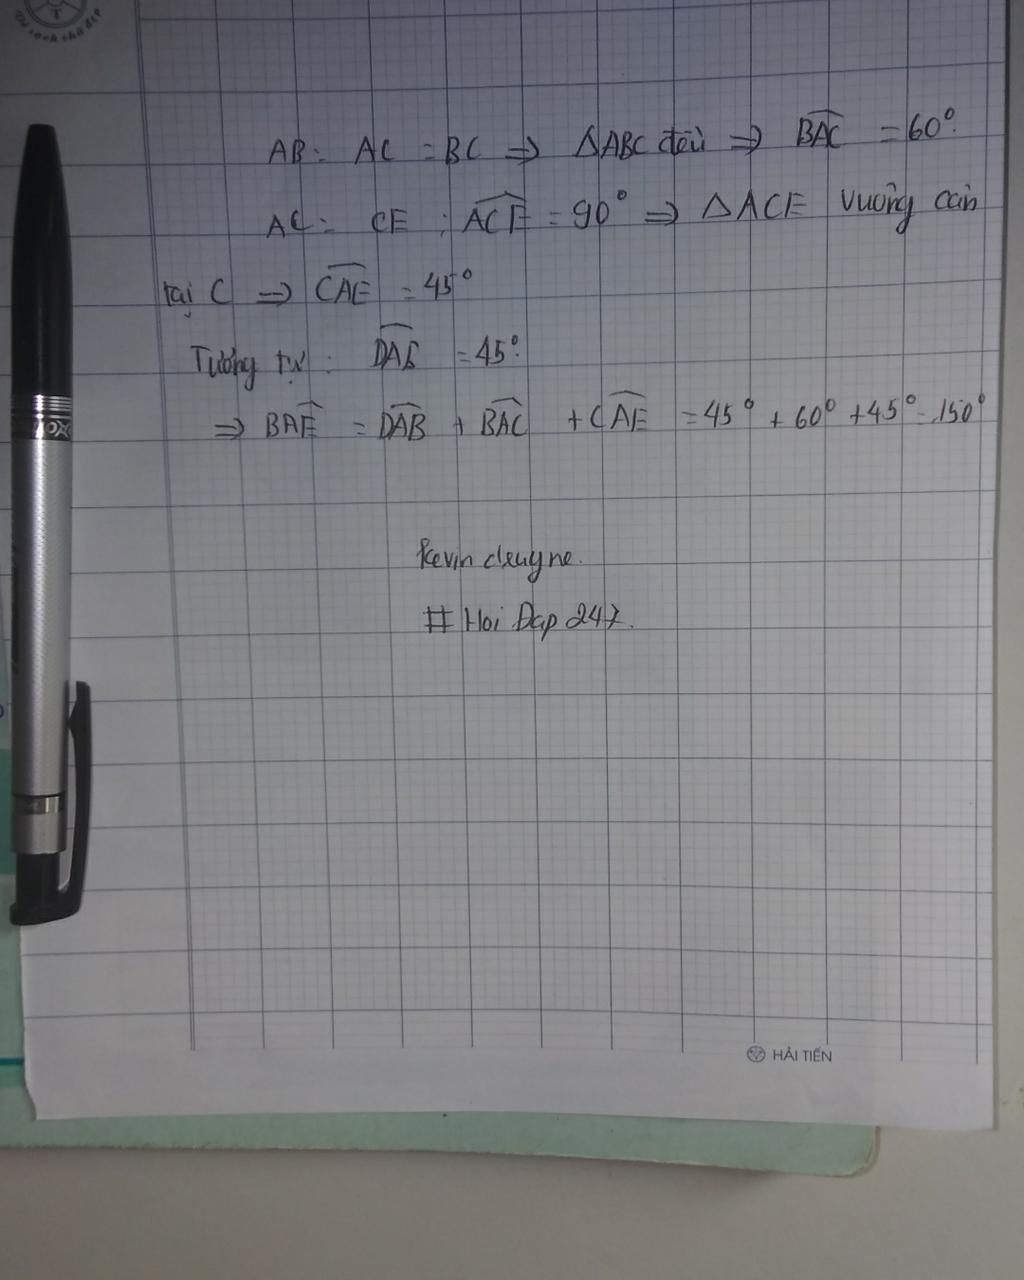 AB = AC = BC ⇒ ΔABC đều ⇒ BAC = 60°.
AC = CE ; ACE = 90° ⇒ ΔACE vuông cân
tại C ⇒ CAE = 45°
Tương tự : DAB = 45°.
⇒ BAE = DAB + BAC + CAE = 45° + 60° + 45° = 150°
Kevin
# Hoi Dap 247.
HẢI TIẾN